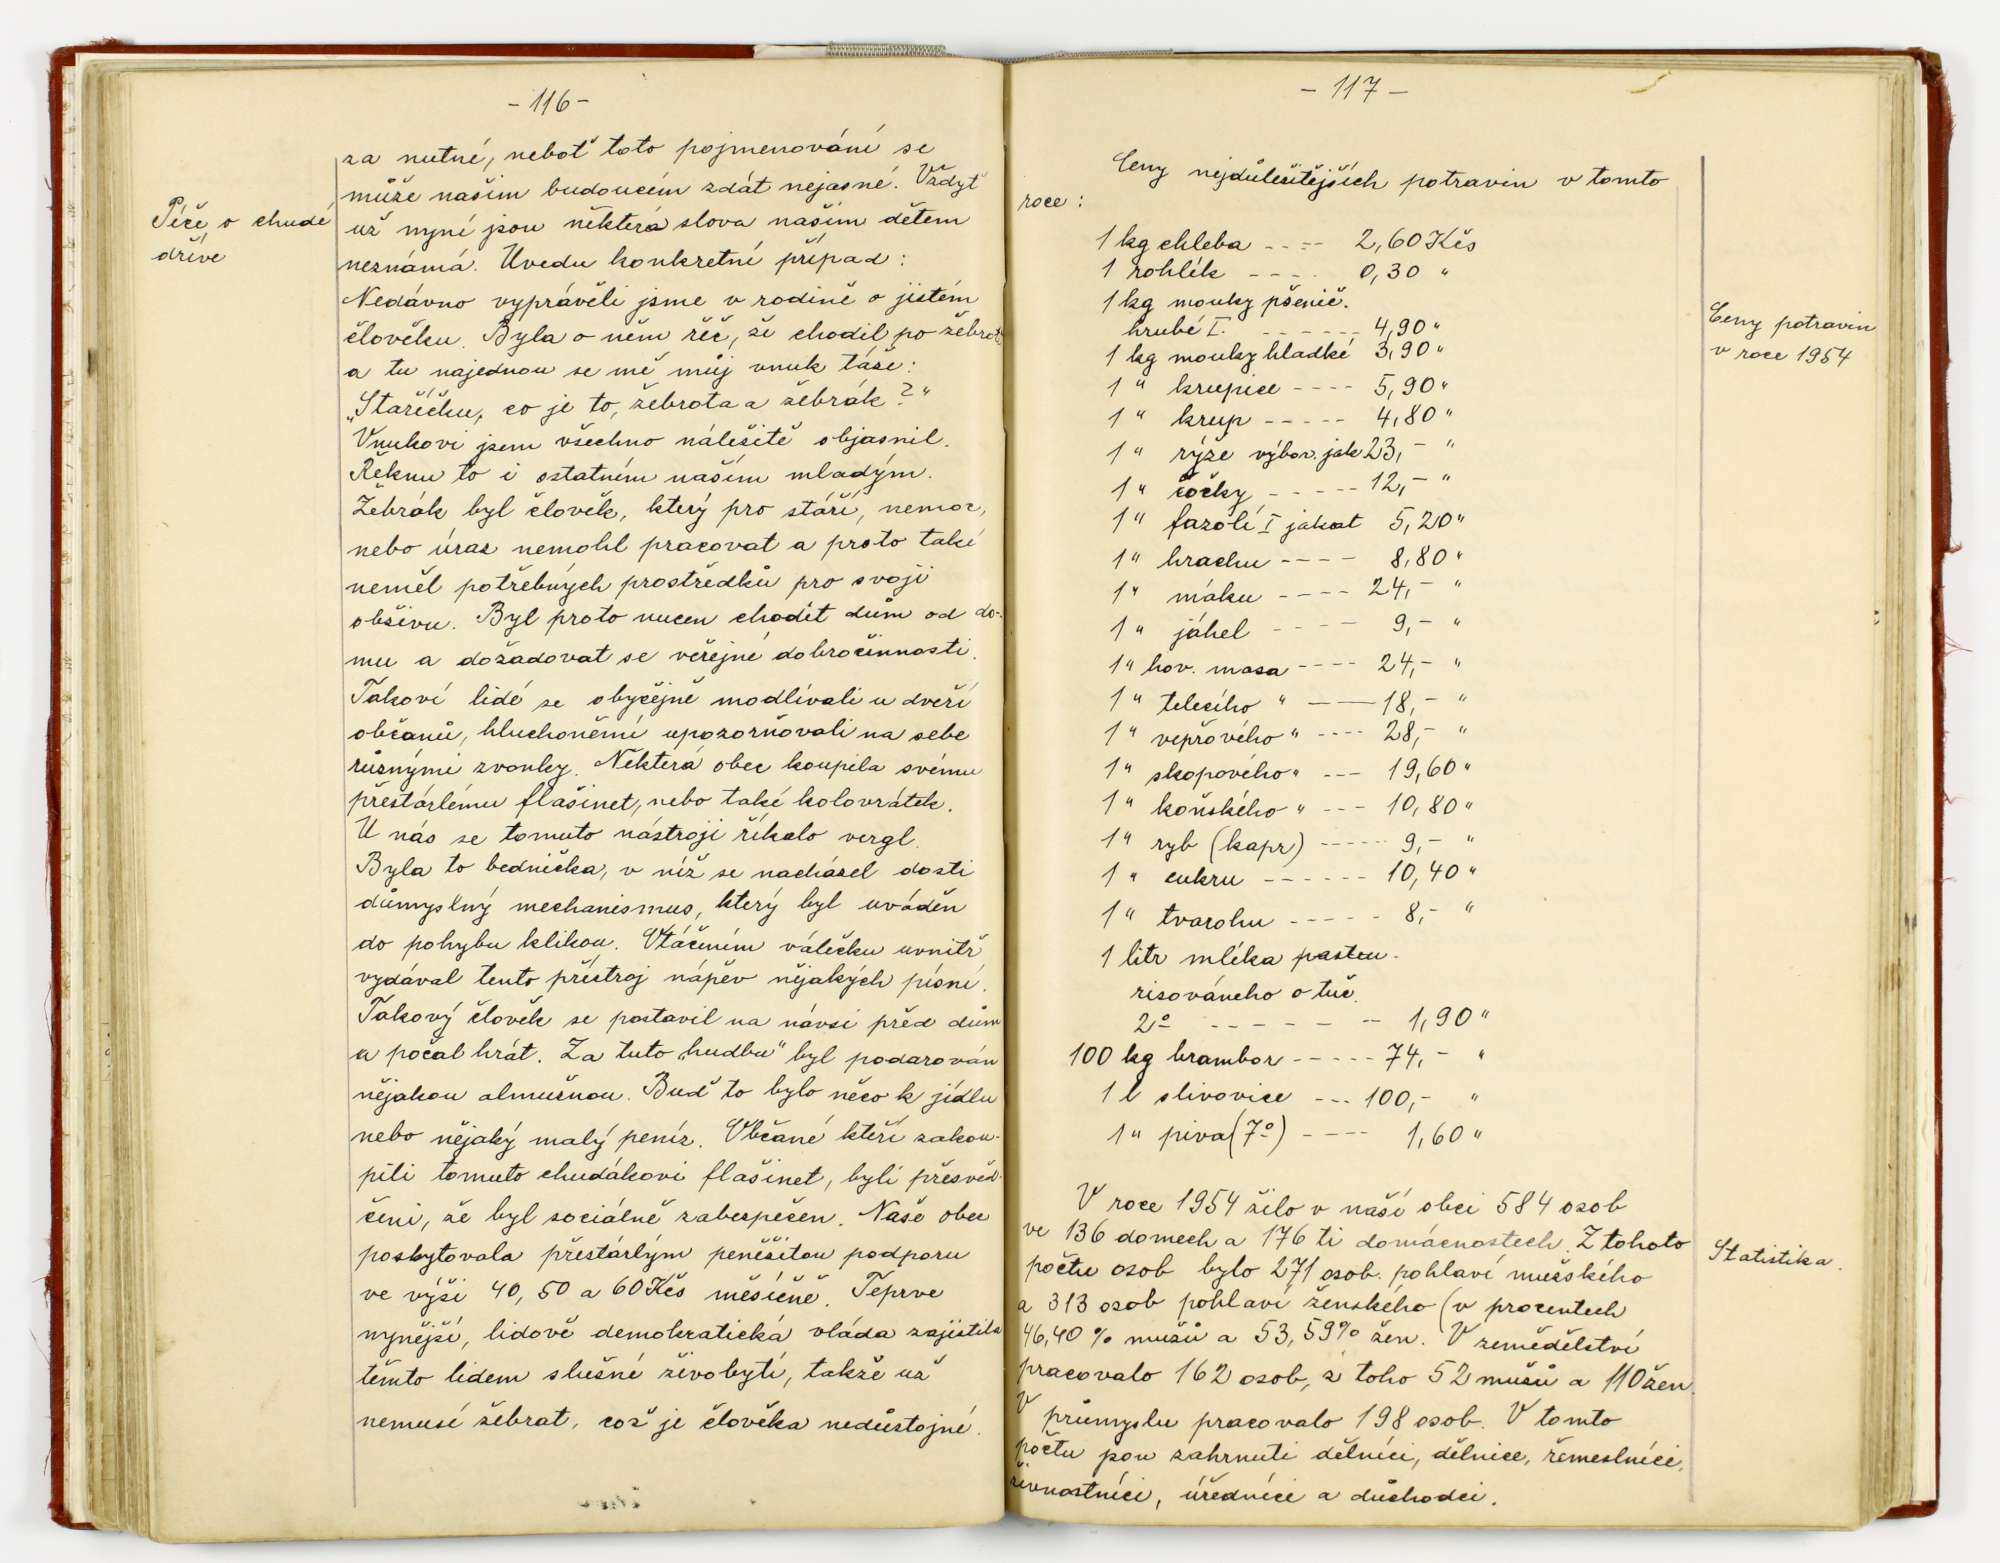 - 116 -
za nutné, neboť toto pojmenování se
může našim budoucém zdát nejasné. Vždyť
Péče o chudé
dříve
už nyní jsou některá slova našim dětem
neznámá. Uvedu konkretní případ:
Nedávno vyprávěli jsme v rodině o jistém
člověku. Byla o něm řěč, že chodil po žebrotě
a tu najednou se mě můj vnuk táže:
„Staříčku, co je to, žebrota a žebrák?"
Vnukovi jsem všechno náležitě objasnil.
Řeknu to i ostatním našim mladým.
Žebrák byl člověk, který pro stáří, nemoc,
nebo úraz nemohl pracovat a proto také
neměl potřebných prostředků pro svoji
obživu. Byl proto nucen chodit dům od do-
mu a dožadovat se veřejné dobročinnosti.
Takoví lidé se obyčejně modlívali u dveří
občanů, hluchoněmí upozorňovali na sebe
různými zvonky. Některá obec koupila svému
přestárlému flašinet, nebo také kolovrátek.
U nás se tomuto nástroji říkalo vergl.
Byla to bednička, v níž se nacházel dosti
důmyslný mechanismus, který byl uváděn
do pohybu klikou. Otáčením válečku uvnitř
vydával tento přístroj nápěv nějakých písní.
Takový člověk se postavil na návsi před dům
a počal hrát. Za tuto „hudbu" byl podarován
nějakou almužnou. Buď to bylo něco k jídlu
nebo nějaký malý peníz. Občané kteří zakou-
pili tomuto chudákovi flašinet, byli přesvěd-
čeni, že byl sociálně zabezpečen. Naše obec
poskytovala přestárlým peněžitou podporu
ve výši 40, 50 a 60 Kčs měsíčně. Teprve
nynější, lidově demokratická vláda zajistila
těmto lidem slušné živobytí, takže už
nemusí žebrat, což je člověka nedůstojné.
- 117 -
Ceny nejdůležitějších potravin v tomto
roce:
1 kg chleba - - - - 2,60 Kčs
1 rohlík - - - - 0,30 "
1 kg mouky pšenič.
hrubé I. - - - - - - 4,90 "
Ceny potravin
v roce 1954
1 kg mouky hladké 3,90 "
1 " krupice - - - - 5,90 "
1 " krup - - - - - 4,80 "
1 " rýže výbor. jak 23,- "
1 " čočky - - - - - 12,- "
1 " fazolí I jakost 5,20 "
1 " hrachu - - - - 8,80 "
1 " máku - - - - 24,- "
1 " jáhel - - - - 9,- "
1 " hov. masa - - - - 24,- "
1 " telecího " - - - 18,- "
1 " vepřového " - - - - 28,- "
1 " skopového " - - - 19,60 "
1 " koňského " - - - 10,80 "
1 " ryb (kapr) - - - - - 9,- "
1 " cukru - - - - - - 10,40 "
1 " tvarohu - - - - - 8,- "
1 litr mléka pasteu-
risováneho o tuč.
2° - - - - - - 1,90 "
100 kg brambor - - - - - 74,- "
1 l slivovice - - - 100,- "
1 " piva (7°) - - - - 1,60 "
V roce 1954 žilo v naší obci 584 osob
ve 136 domech a 176 ti domácnostech. Z tohoto
Statistika.
počtu osob bylo 271 osob. pohlaví mužského
a 313 osob pohlaví ženského (v procentech
46,40 % mužů a 53,59% žen. V zemědělství
pracovalo 162 osob, z toho 52 mužů a 110 žen.
V průmyslu pracovalo 198 osob. V tomto
počtu jsou zahrnuti dělníci, dělnice, řemeslníci,
živnostníci, úředníci a důchodci.